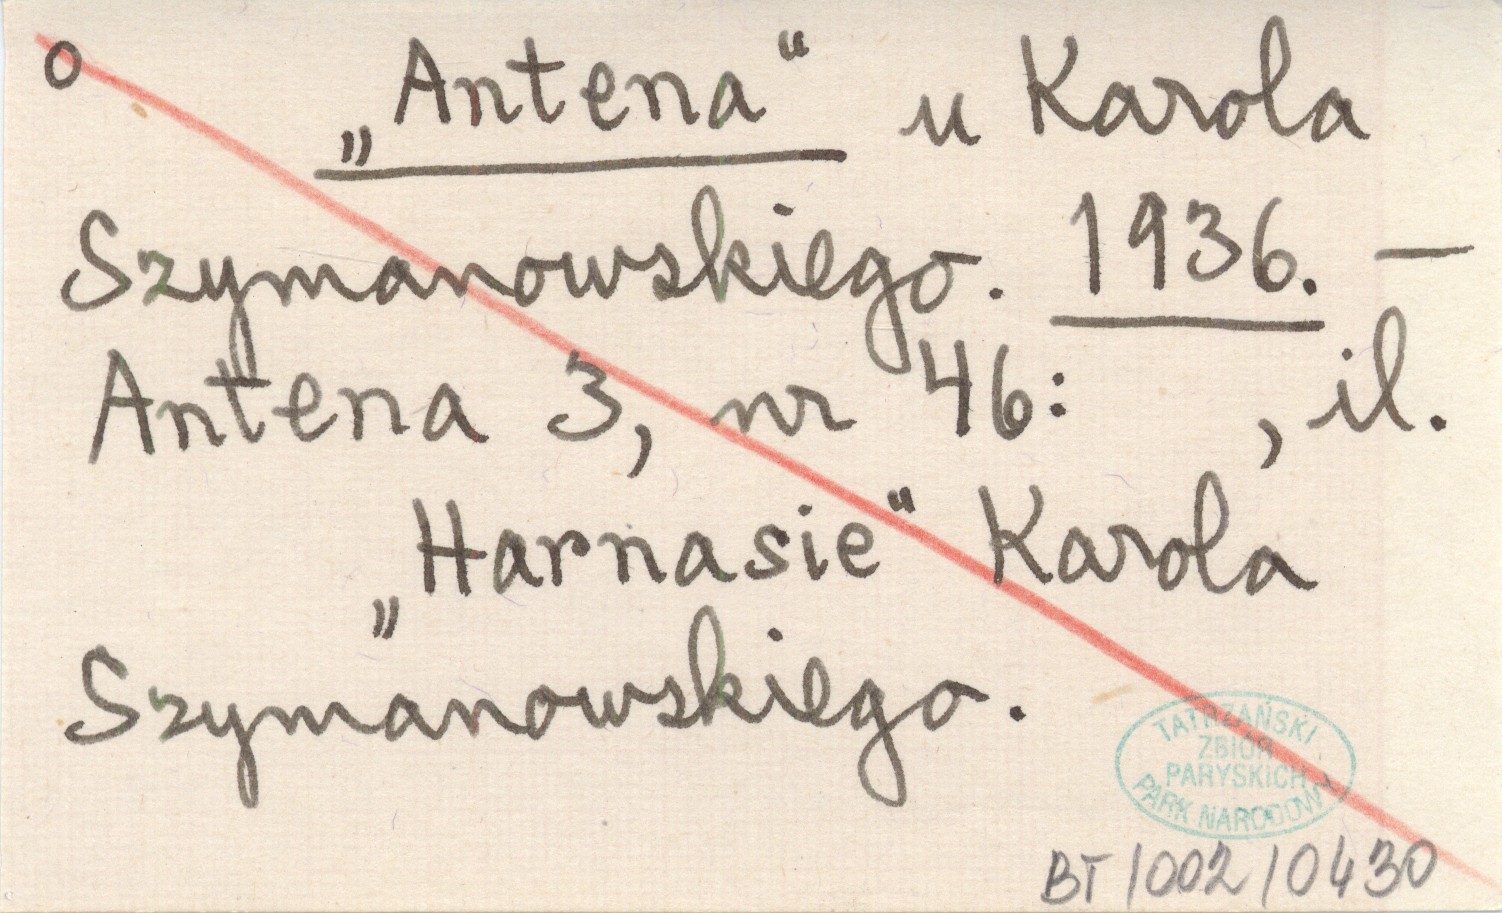 o „Antena“ u Karola
Szymanowskiego. 1936. —
Antena 3, nr 46: , il.
„Harnasie“ Karola
Szymanowskiego.
TATRZAŃSKI
ZBIÓR
PARYSKICH
PARK NARODOWY
BT/002/0430